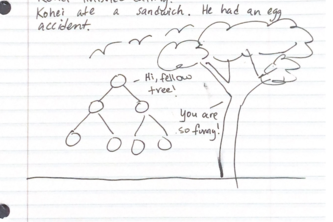 Kohei ate a sandwich. He had an egg
accident.
Hi, fellow
tree!
You are
so funny!